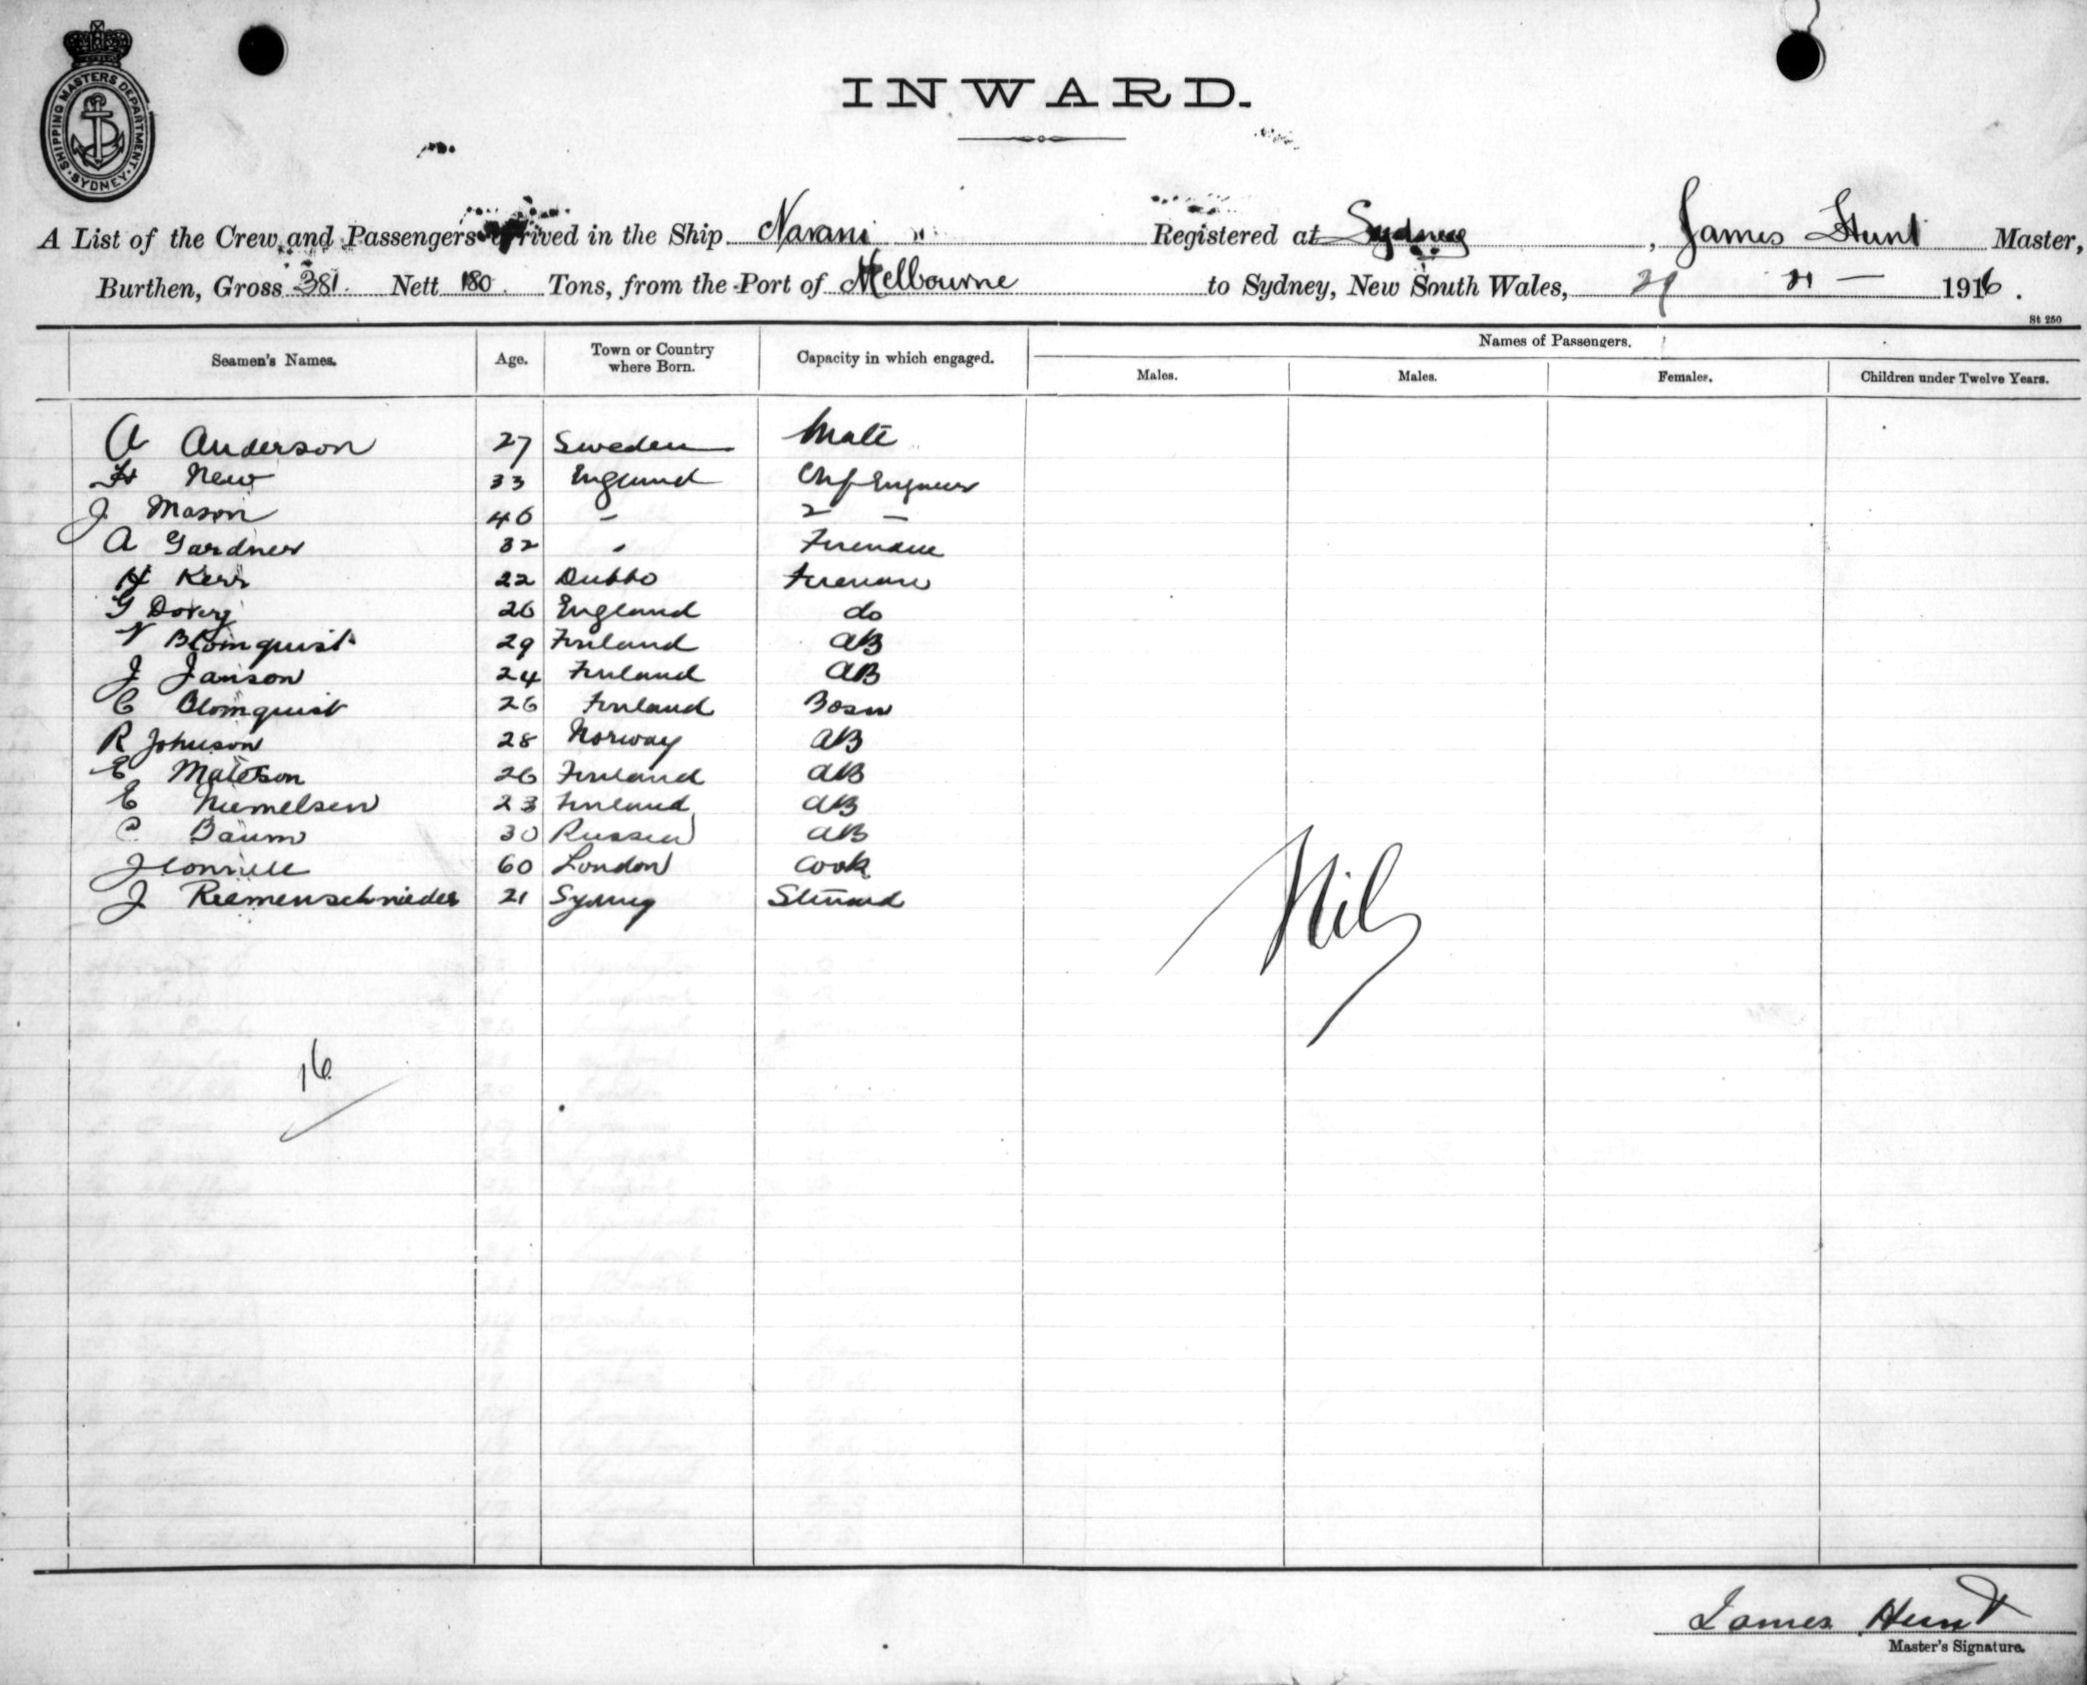 SHIPPING MASTERS DEPARTMENT. SYDNEY.
INWARD.
A List of the Crew and Passengers arrived in the Ship Narani Registered at Sydney, James Hunt Master,
Burthen, Gross 381. Nett 180. Tons, from the Port of Melbourne to Sydney, New South Wales, 1916.
St 250
Seamen's Names. Age. Town or Country where Born. Capacity in which engaged. Names of Passengers.
Males. Males. Females. Children under Twelve Years.
A Anderson 27 Sweden Mate
H New 33 England Chf Engineer
J Mason 46 - 2 -
A Gardner 32 " Fireman
H Kerr 22 Dubbo Fireman
G Dovey 26 England do
V Blomquist 29 Finland AB
J Janson 24 Finland AB
C Blomquist 26 Finland Bosn
R Johnson 28 Norway AB
E Mattson 26 Finland AB
E Niemelsen 23 Finland AB
C Baum 30 Russia AB
J 60 London Cook
J Reemenschnieder 21 Sydney Steward
Nil
16
James Hunt
Master's Signature.